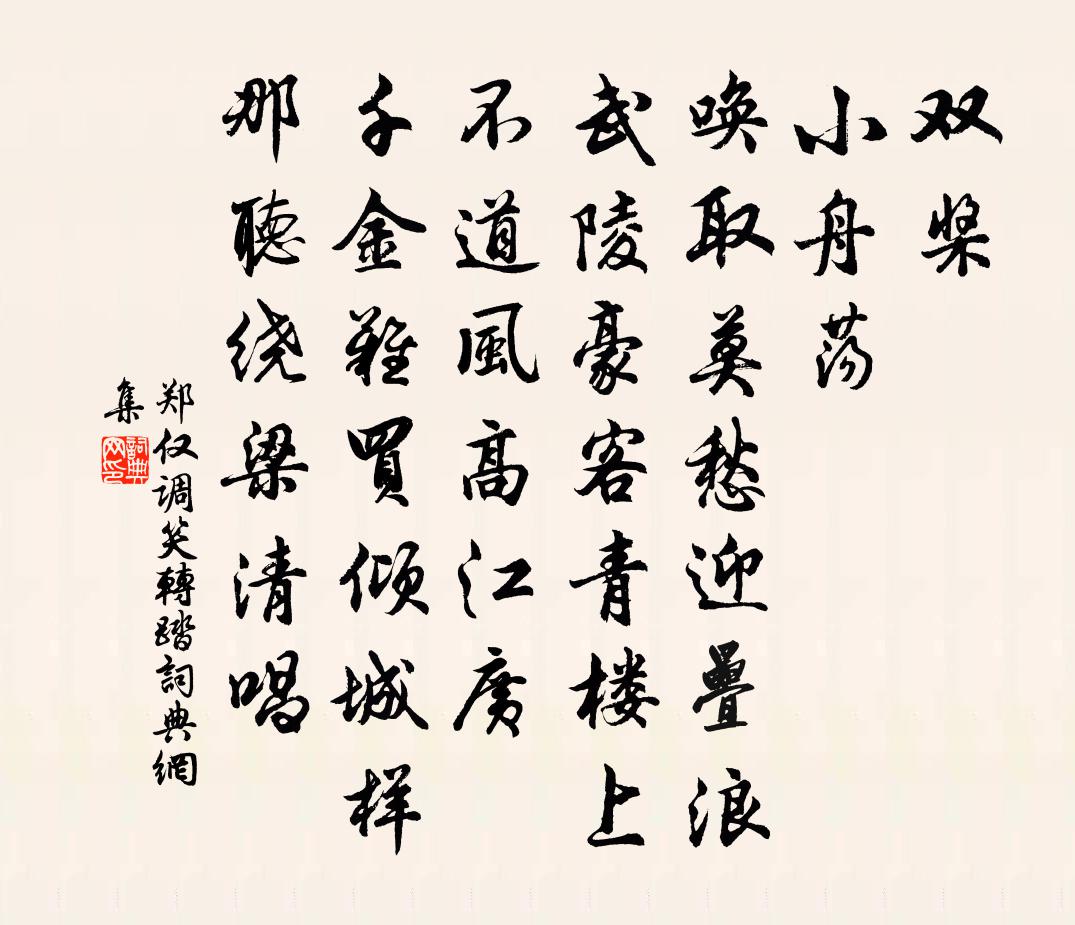 双桨
小舟荡
唤取莫愁迎疊浪
武陵豪客青楼上
不道風高江广
千金難買倾城样
那聽绕梁清唱
郑仅调笑轉踏詞典網
集
詞典
网印